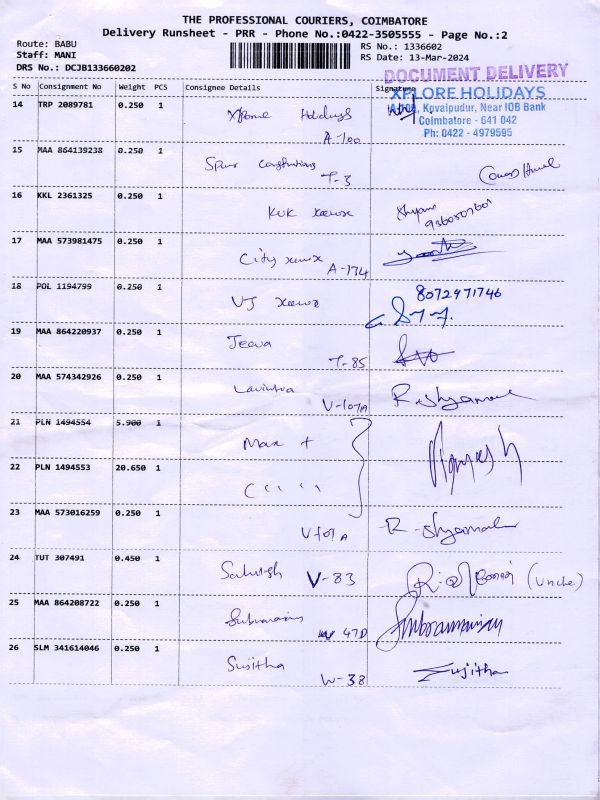 THE PROFESSIONAL COURIERS, COIMBATORE
Delivery Runsheet - PRR - Phone No.:0422-3505555 - Page No.:2
Route: BABU
Staff: MANI
DRS No.: DCJB133660202
RS No.: 1336602
RS Date: 13-Mar-2024
DOCUMENT DELIVERY
XPLORE HOLIDAYS
Kpvaipudur, Near IOB Bank
Coimbatore - 641 042
Ph: 0422 - 4979595
S No Consignment No Weight PCS Consignee Details Signature
14 TRP 2089781 0.250 1 Holidays
A-100
15 MAA 864139238 0.250 1
T-3
16 KKL 2361325 0.250 1 KUK xerox Shyam
9360507601
17 MAA 573981475 0.250 1 City xerox
A-174
18 POL 1194799 0.250 1 VJ xerox 8072971746
19 MAA 864220937 0.250 1 Jeeva
T-85
20 MAA 574342926 0.250 1
V-107A R. Shyamal
21 PLN 1494554 5.900 1 Max +
22 PLN 1494553 20.650 1
23 MAA 573016259 0.250 1
V-107A R-Shyamal
24 TUT 307491 0.450 1 V-83 (Uncle)
25 MAA 864208722 0.250 1
47D
26 SLM 341614046 0.250 1 Sujitha
W-38 Sujitha